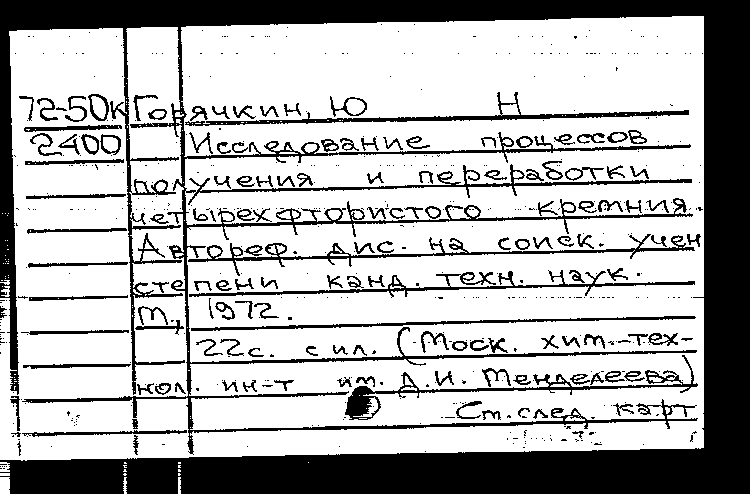 72-50к Горячкин, Ю Н
2400 Исследование процессов
получения и переработки
четырехфтористого кремния.
Автореф. дис. на соиск. учен
степени канд. техн. наук.
М., 1972.
22с. с ил. (Моск. хим.-тех-
нол. ин-т им. Д.И. Менделеева)
См. след. карт